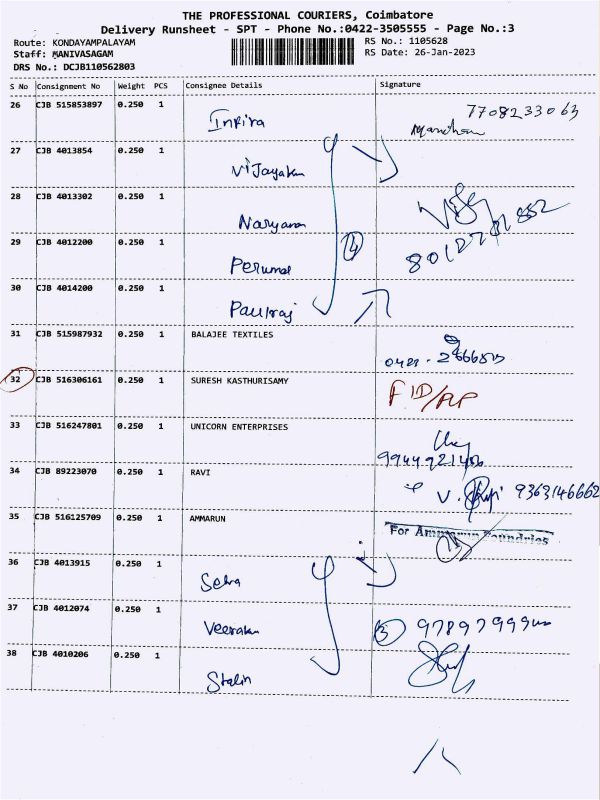 THE PROFESSIONAL COURIERS, Coimbatore
Delivery Runsheet - SPT - Phone No.:0422-3505555 - Page No.:3
Route: KONDAYAMPALAYAM RS No.: 1105628
Staff: MANIVASAGAM RS Date: 26-Jan-2023
DRS No.: DCJB110562803
S No Consignment No Weight PCS Consignee Details Signature
26 CJB 515853897 0.250 1 7708233063
27 CJB 4013854 0.250 1 Vijayakum
28 CJB 4013302 0.250 1 Naryanan
29 CJB 4012200 0.250 1 Perumal 4 8012781852
30 CJB 4014200 0.250 1 Paulraj
31 CJB 515987932 0.250 1 BALAJEE TEXTILES
32 CJB 516306161 0.250 1 SURESH KASTHURISAMY
33 CJB 516247801 0.250 1 UNICORN ENTERPRISES
34 CJB 89223070 0.250 1 RAVI 9363146662
35 CJB 516125709 0.250 1 AMMARUN For Ammarun Foundries
36 CJB 4013915 0.250 1 Selva
37 CJB 4012074 0.250 1 3
38 CJB 4010206 0.250 1 Stalin